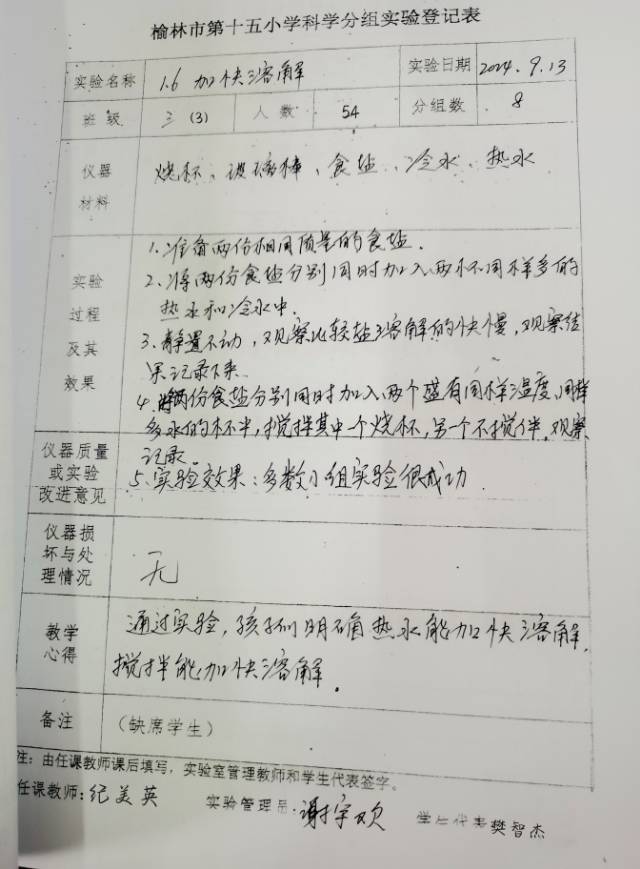 榆林市第十五小学科学分组实验登记表
实验名称 1.6 加快溶解 实验日期 2024.9.13
班级 三(3) 人数 54 分组数 8
仪器材料 烧杯、玻璃棒、食盐、冷水、热水
实验过程及其效果
1.准备两份相同质量的食盐.
2.将两份食盐分别同时加入两杯同样多的
热水和冷水中.
3.静置不动,观察比较盐溶解的快慢,观察结
果记录下来.
4.将两份食盐分别同时加入两个盛有同样温度、同样
多水的杯中,搅拌其中一个烧杯,另一个不搅伴.观察
记录.
5.实验效果:多数小组实验很成功
仪器质量或实验改进意见
仪器损坏与处理情况 无
教学心得 通过实验,孩子们明确热水能加快溶解.
搅拌能加快溶解.
备注 (缺席学生)
注:由任课教师课后填写,实验室管理教师和学生代表签字。
任课教师:纪美英 实验管理员:谢宇欢 学生代表樊智杰